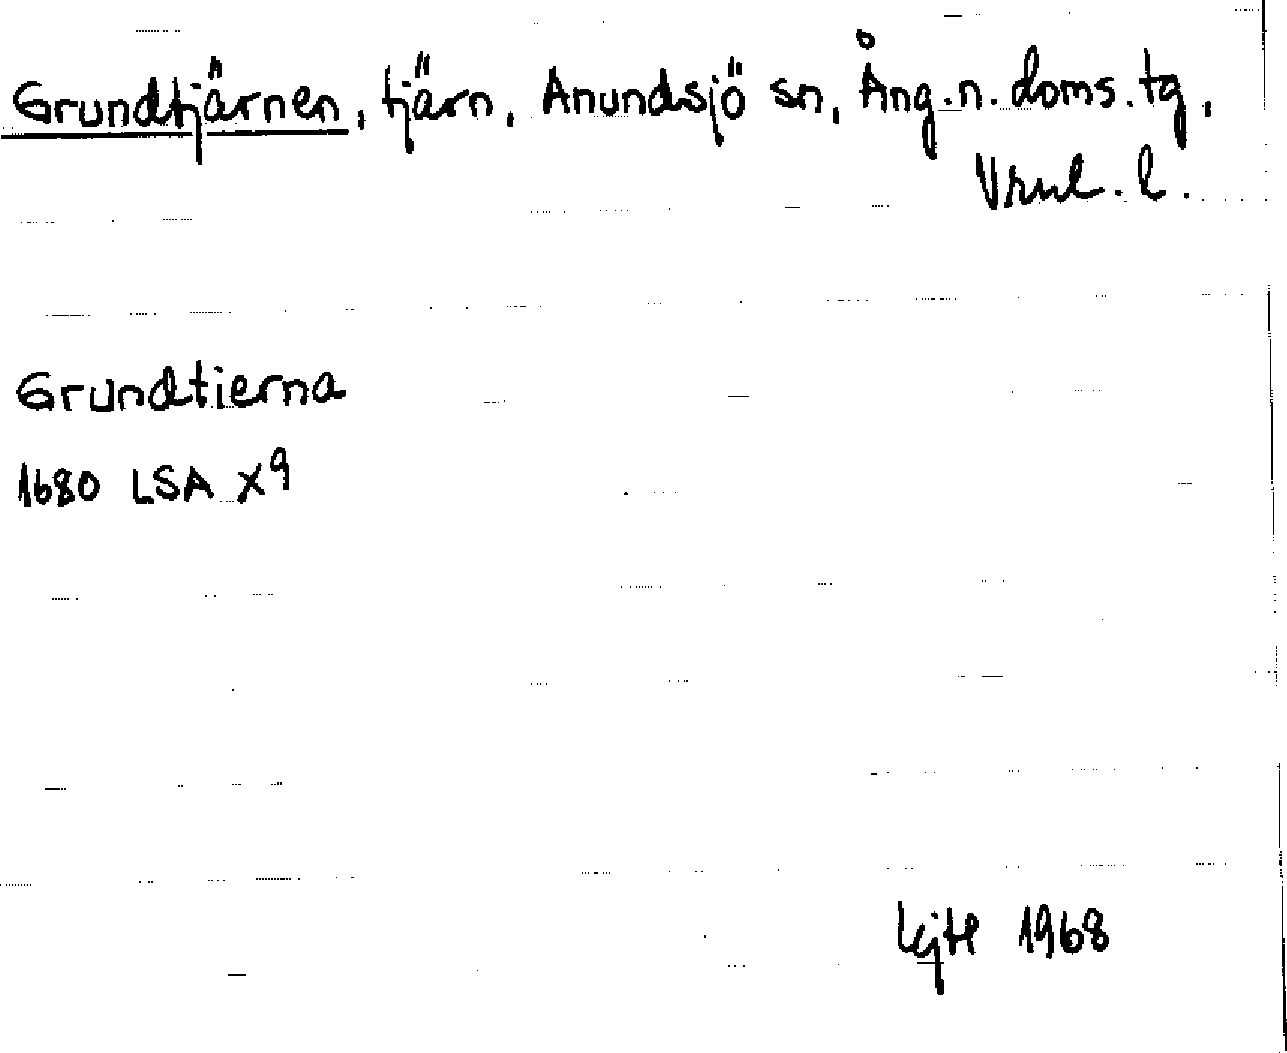 Grundtjärnen, tjärn, Anundsjö sn, Ång.n.doms.tg,
Vrnl. l.
Grundtierna
1680 LSA X9
1968